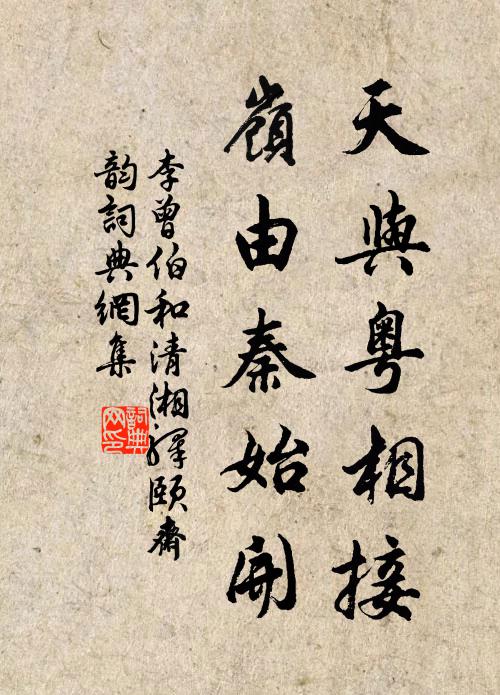 天與粵相接
嶺由秦始開
李曾伯和清湘驛頤齋
韵詞典網集
詞典網印